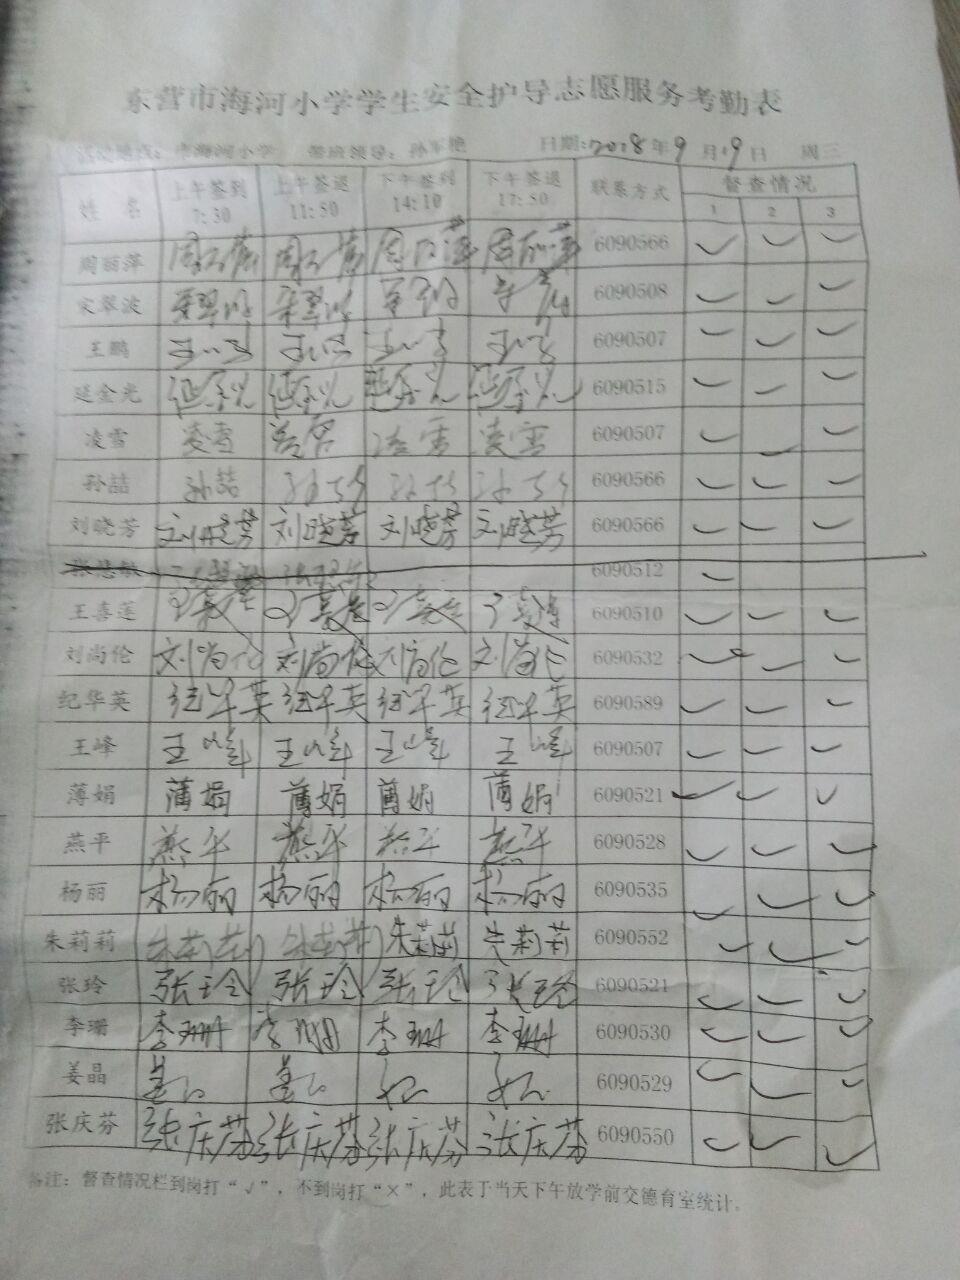 东营市海河小学学生安全护导志愿服务考勤表
活动地点：市海河小学 带班领导：孙军艳 日期:2018年9月19日 周三
姓 名 上午签到 7:30 上午签退 11:50 下午签到 14:10 下午签退 17:50 联系方式 督查情况
1 2 3
周丽萍 周丽萍 周丽萍 周丽萍 周丽萍 6090566 ✓ ✓ ✓
宋翠波 宋翠波 宋翠波 6090508 ✓ ✓ ✓
王鹏 王鹏 王鹏 王鹏 王鹏 6090507 ✓ ✓ ✓
延金光 延金光 延金光 延金光 延金光 6090515 ✓ ✓ ✓
凌雪 凌雪 凌雪 凌雪 凌雪 6090507 ✓ ✓ ✓
孙喆 孙喆 孙喆 孙喆 孙喆 6090566 ✓ ✓ ✓
刘晓芳 刘晓芳 刘晓芳 刘晓芳 刘晓芳 6090566 ✓ ✓ ✓
张慧敏 6090512 ✓
王喜莲 王喜莲 王喜莲 王喜莲 王喜莲 6090510 ✓ ✓ ✓
刘尚伦 刘尚伦 刘尚伦 刘尚伦 刘尚伦 6090532 ✓ ✓ ✓
纪华英 纪华英 纪华英 纪华英 纪华英 6090589 ✓ ✓ ✓
王峰 王峰 王峰 王峰 王峰 6090507 ✓ ✓ ✓
薄娟 薄娟 薄娟 薄娟 薄娟 6090521 ✓ ✓ ✓
燕平 燕平 燕平 燕平 燕平 6090528 ✓ ✓ ✓
杨丽 杨丽 杨丽 杨丽 杨丽 6090535 ✓ ✓ ✓
朱莉莉 朱莉莉 朱莉莉 朱莉莉 朱莉莉 6090552 ✓ ✓ ✓
张玲 张玲 张玲 张玲 张玲 6090521 ✓ ✓ ✓
李珊 李珊 李珊 李珊 李珊 6090530 ✓ ✓ ✓
姜晶 6090529 ✓ ✓ ✓
张庆芬 张庆芬 张庆芬 张庆芬 张庆芬 6090550 ✓ ✓ ✓
备注：督查情况栏到岗打“√”，不到岗打“×”，此表于当天下午放学前交德育室统计。